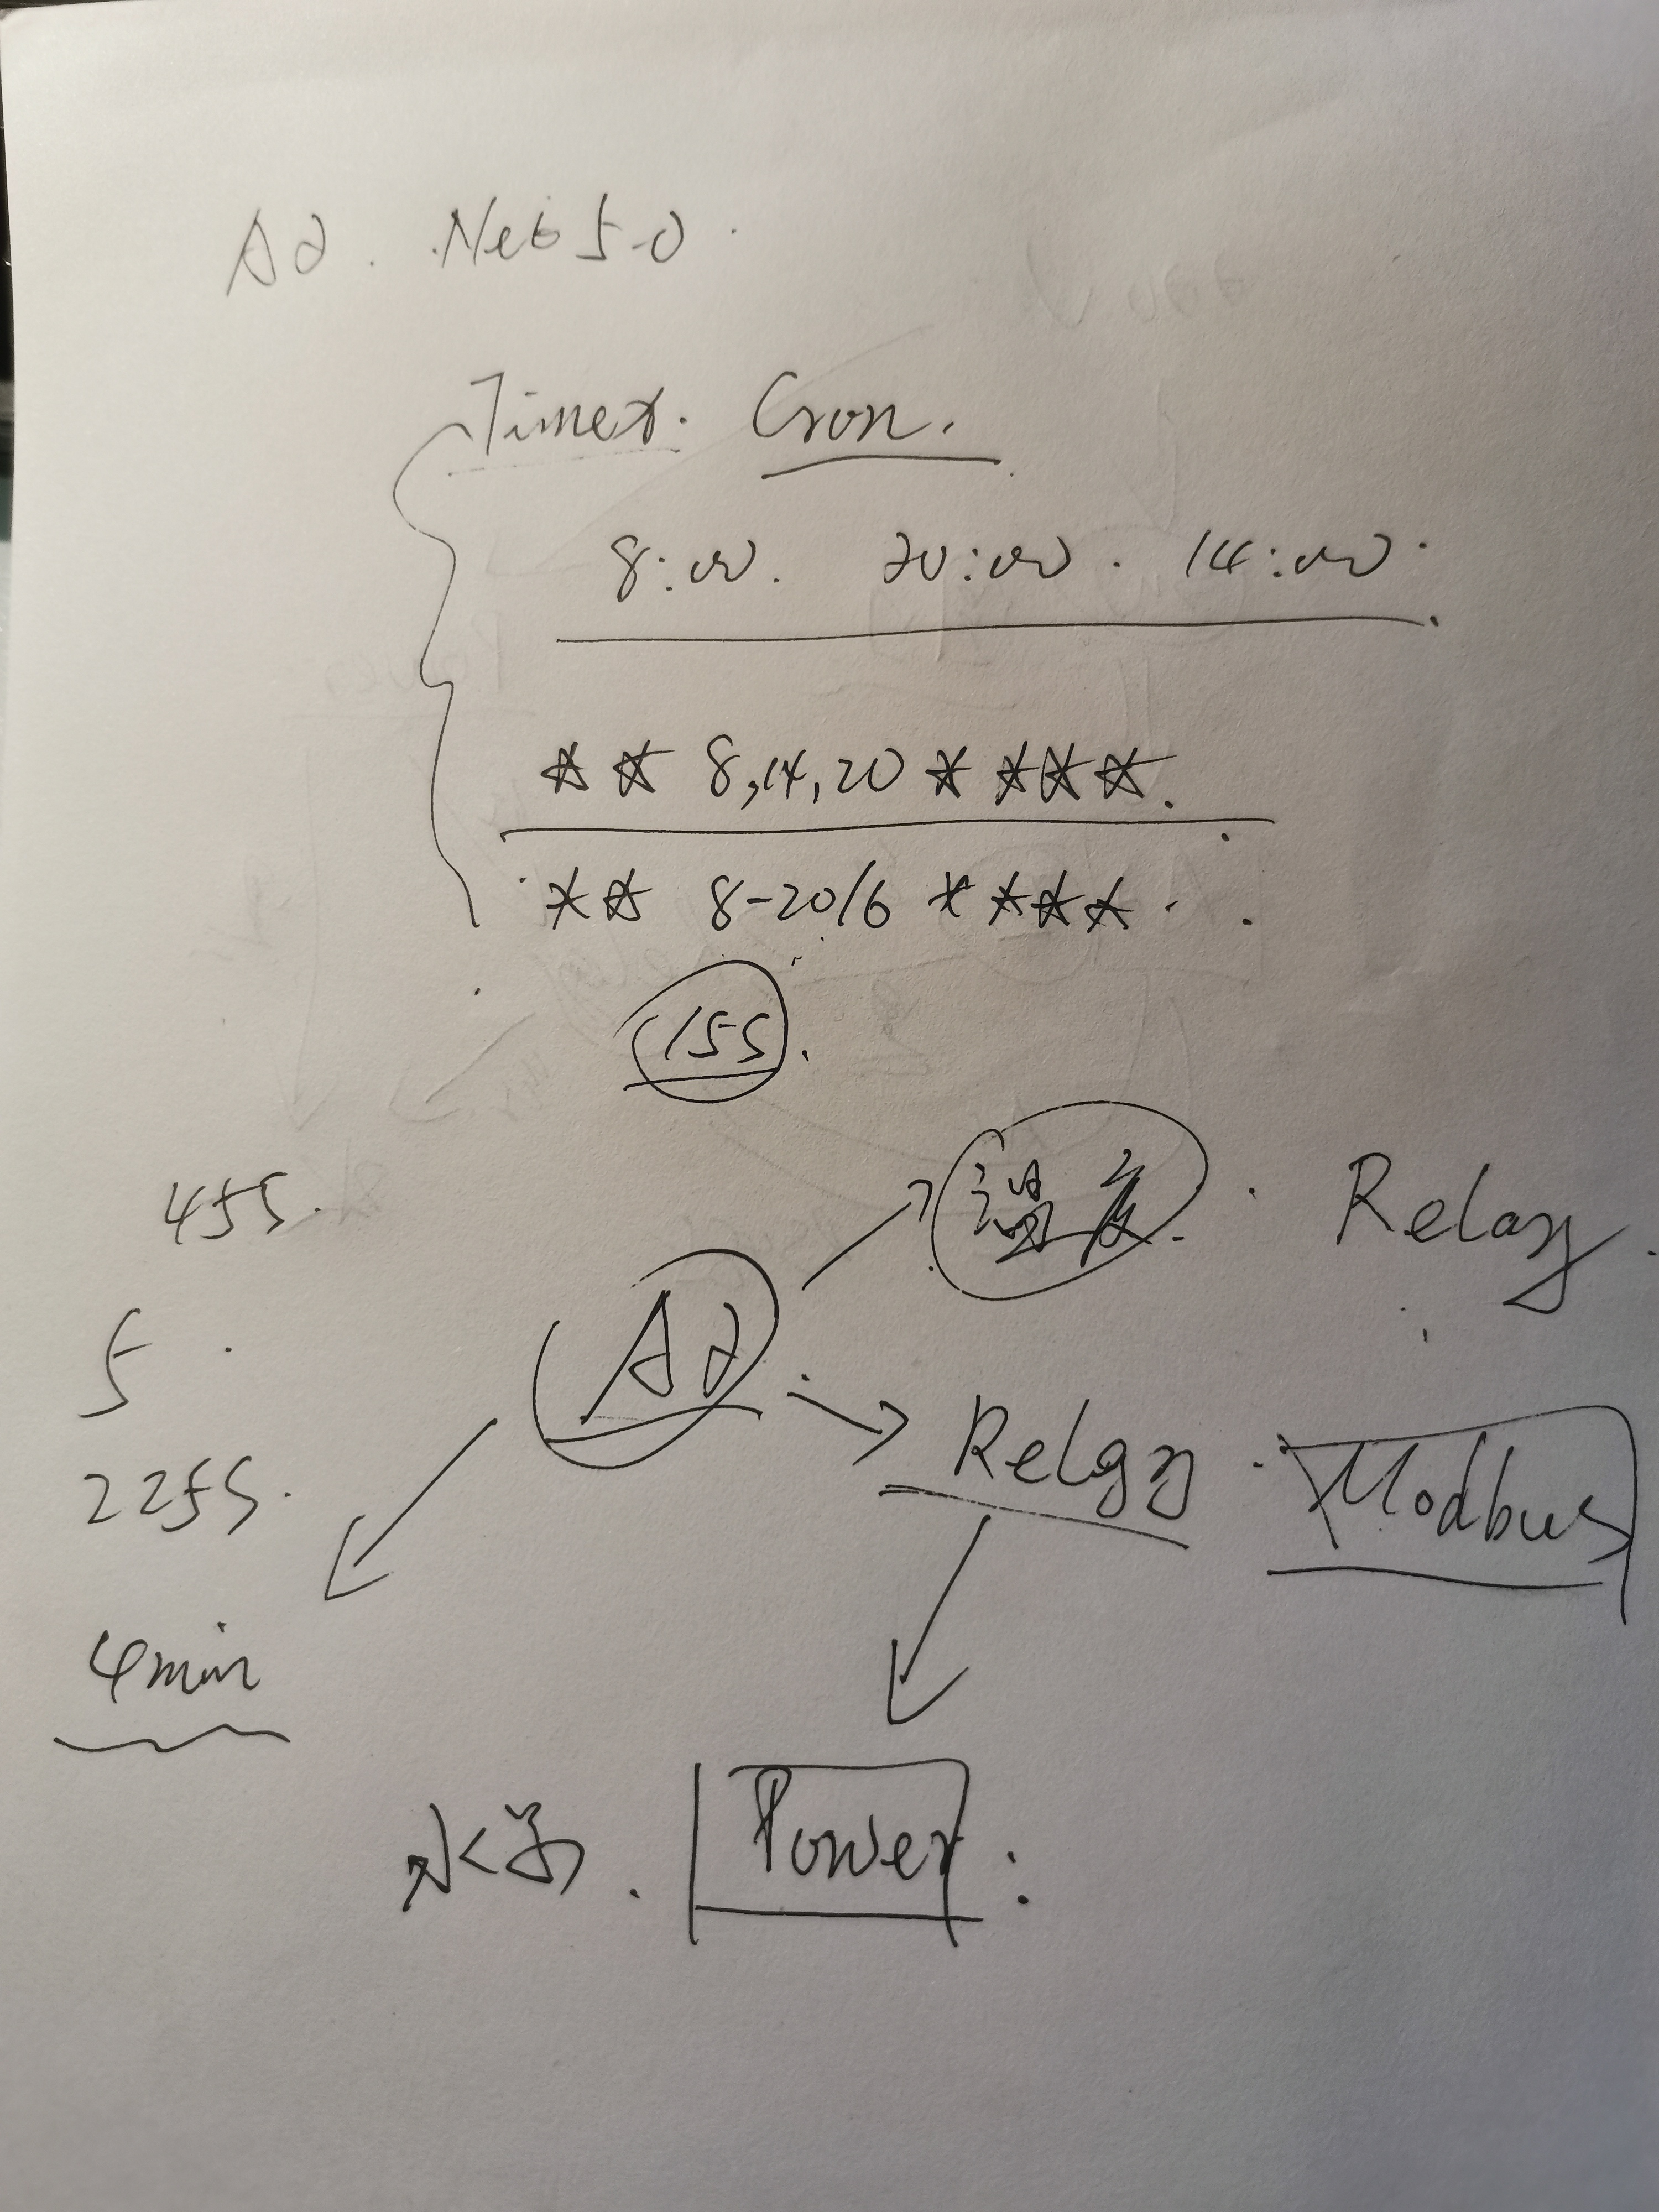 A2. Net5.0.
Timer. Cron.
8:00. 20:00. 14:00.
** 8,14,20 * ***.
** 8-20/6 * ***.
155.
45S.
温度. Relay.
5.
A2
Relay. Modbus
225S.
4min
水泵. Power.